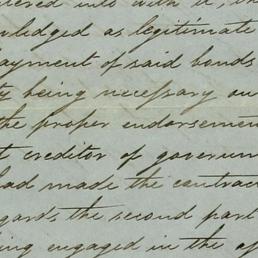 tered into with it, th
wledged as legitimate
payment of said bonds
ty being necessary on
the proper endorsemen
t creditor of governm
had made the contrac
gards the second part
ing engaged in the